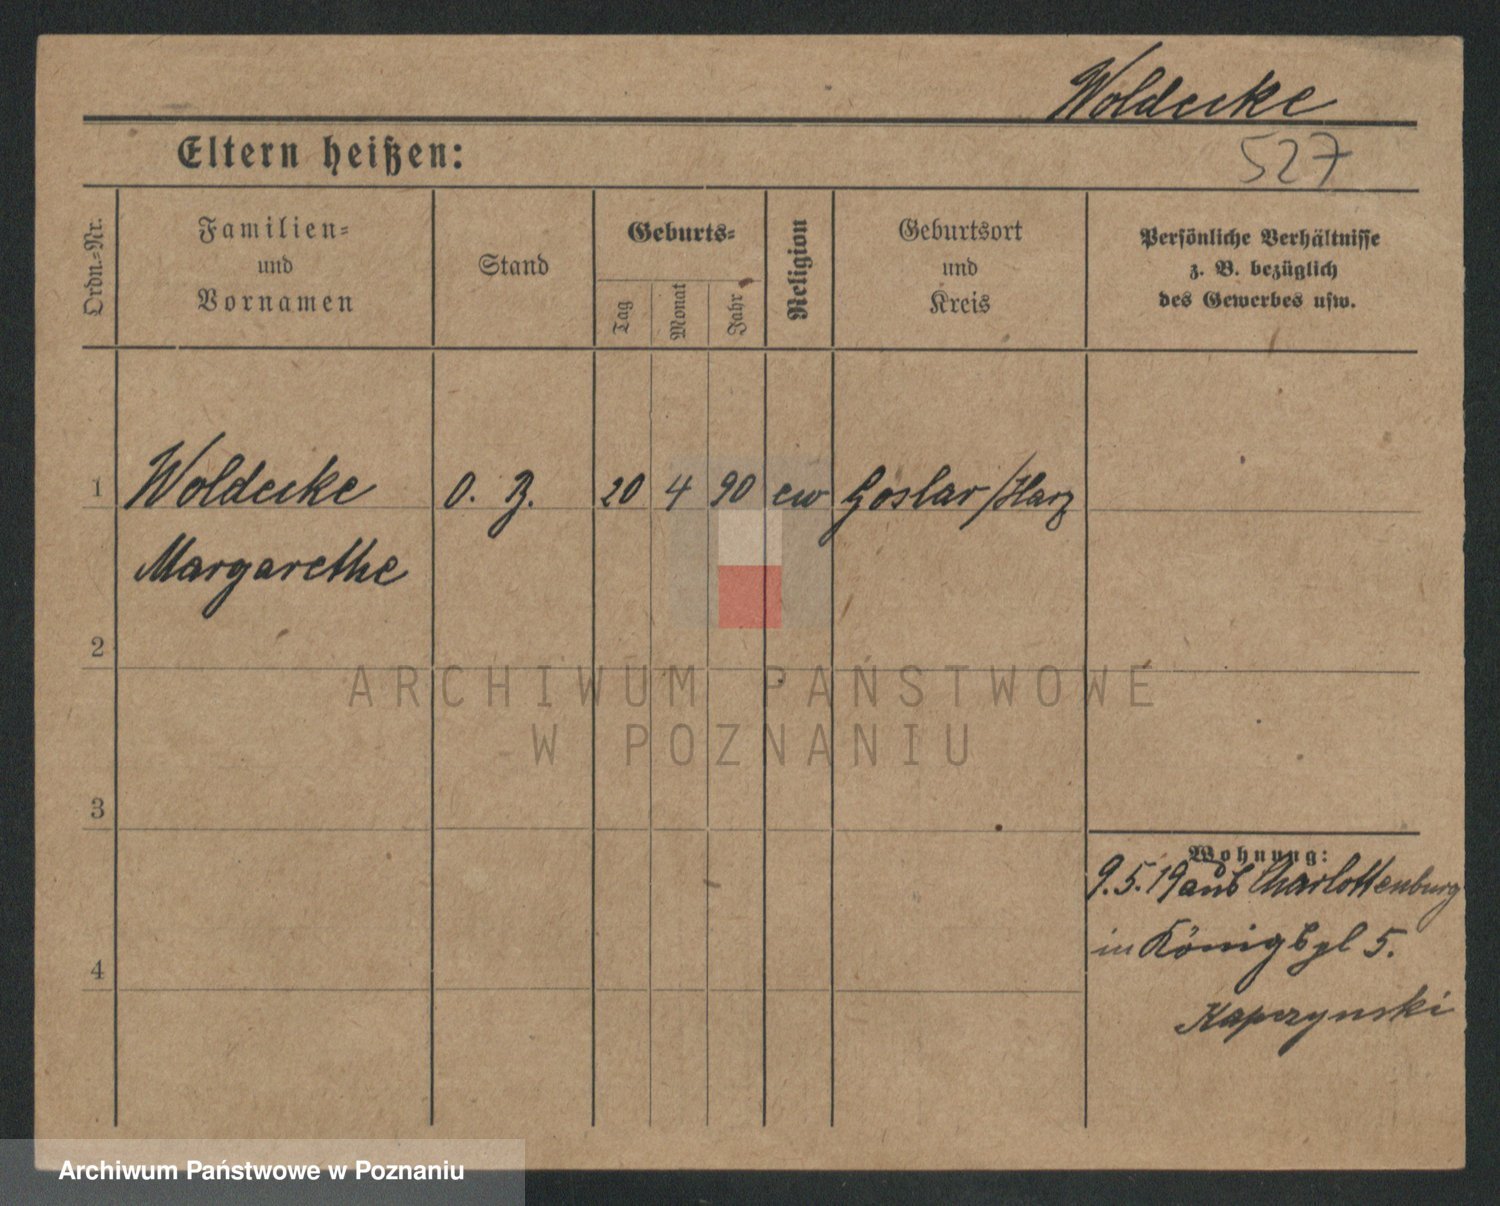 Woldecke
527
Eltern heißen:
Ordn.-Nr.
Familien-
und
Vornamen
Stand
Geburts-
Tag
Monat
Jahr
Religion
Geburtsort
und
Kreis
Persönliche Verhältnisse
z. B. bezüglich
des Gewerbes usw.
1 Woldecke O. Z. 20 4 90 ew Goslar/Harz
Margarethe
2
ARCHIWUM PAŃSTWOWE
W POZNANIU
3
Wohnung:
9.5.19 aus Charlottenburg
in Königspl 5.
4
Kapczynski
Archiwum Państwowe w Poznaniu